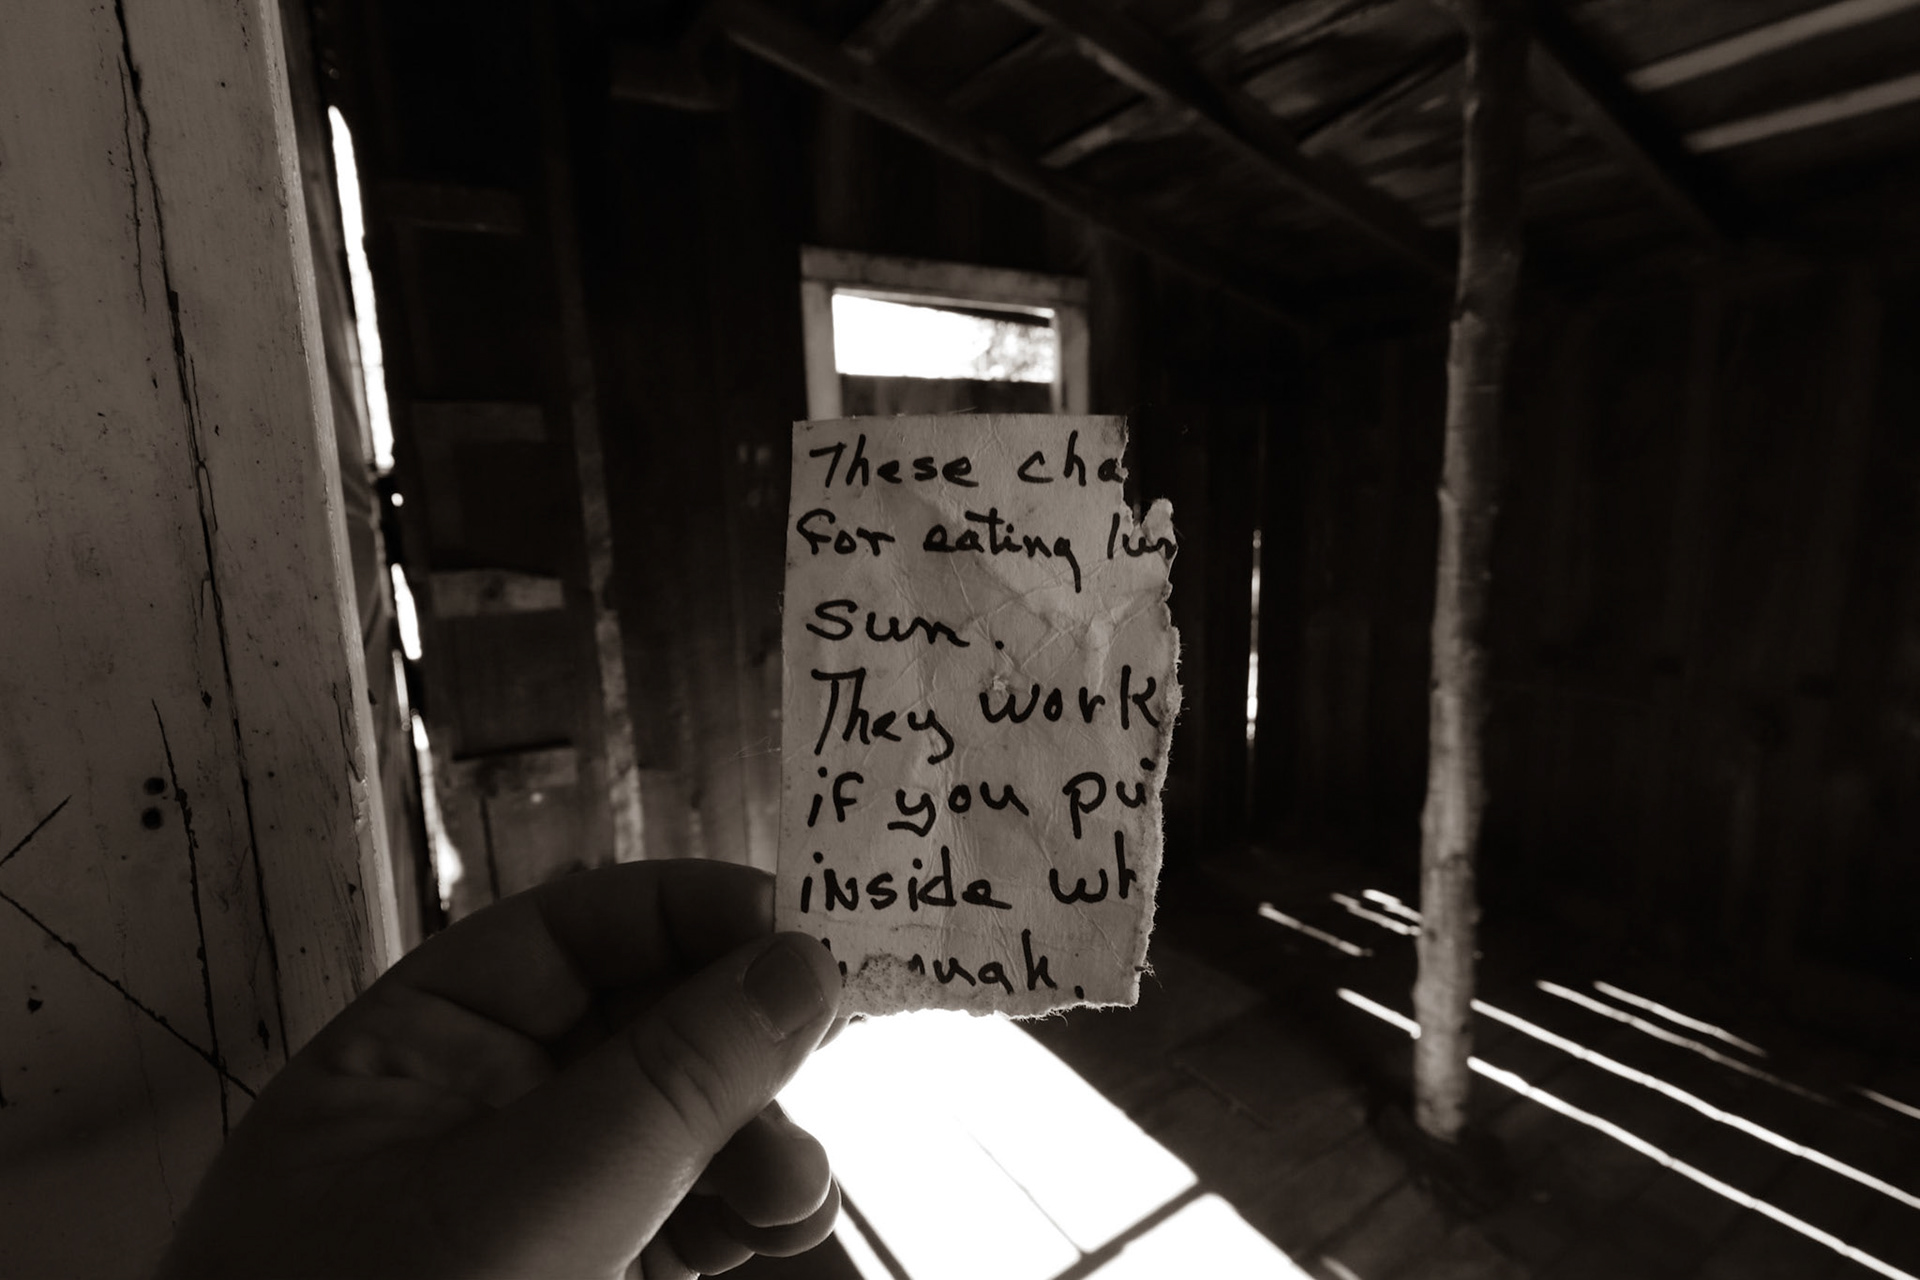 These cha
for eating lun
Sun.
They work
if you pu
inside wh